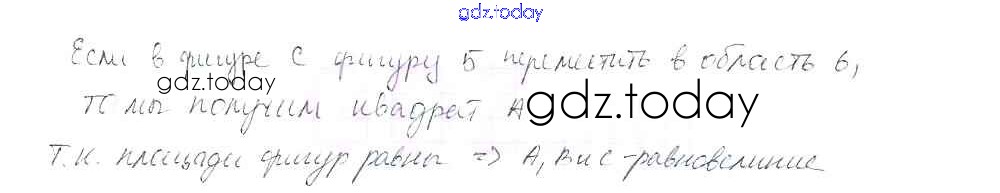 gdz.today
Если в фигуре С фигуру 5 переместить в область 6,
то мы получим квадрат А
gdz.today
Т.к. площади фигур равны => А, В и С - равновеликие